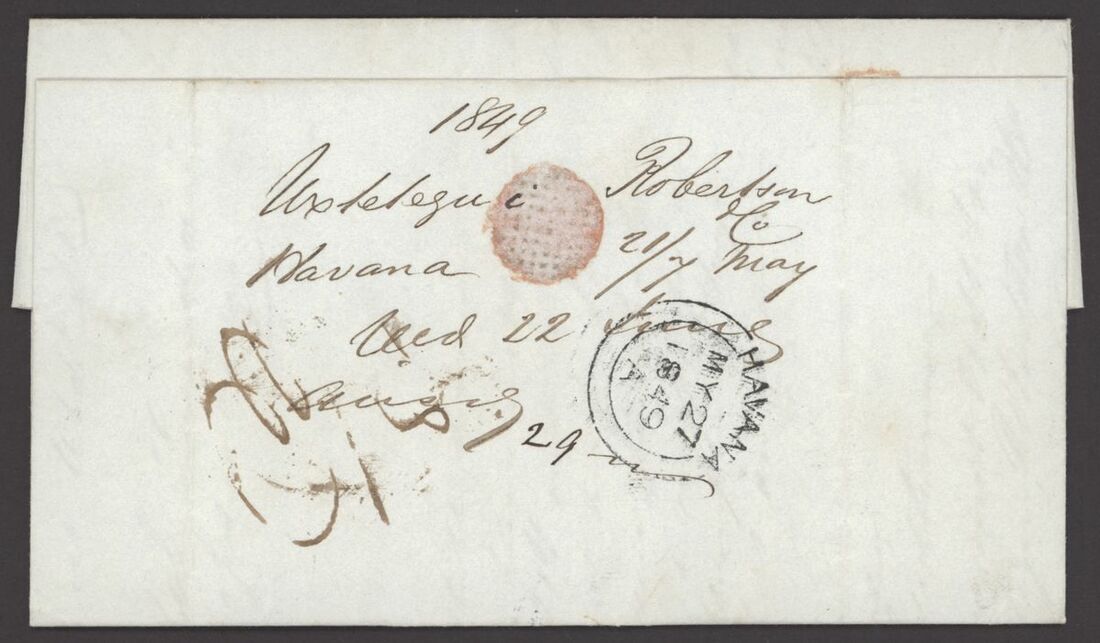 1849
Uxtetegui Robertson
& Co
Havana 21/7 May
Recd 22 June
29
HAVANA
MY 27
1849
A